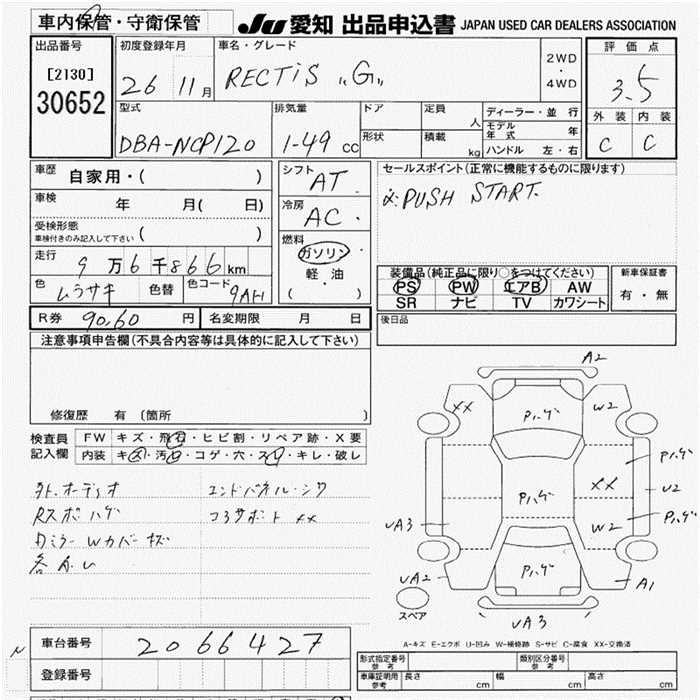 車内保管・守衛保管
JU 愛知 出品申込書 JAPAN USED CAR DEALERS ASSOCIATION
出品番号
[2130]
30652
初度登録年月
26 11月
車名・グレード
RECTiS "G"
2WD
・
4WD
評価点
3.5
外装 内装
C C
型式
DBA-NCP120
排気量
1-49 cc
ドア
形状
定員
人
積載
kg
ディーラー・並行
モデル年式 年
ハンドル 左・右
車歴
自家用・( )
車検
年 月( 日)
受検形態
車検付きのみ記入して下さい ( )
走行
9万6千866km
色
ムラサキ
色替
色コード
9AH
シフト
AT
冷房
AC
燃料
ガソリン
軽・油
( )
セールスポイント(正常に機能するものに限ります)
PUSH START.
装備品(純正品に限り○をつけてください)
PS PW エアB AW
SR ナビ TV カワシート
新車保証書
有・無
後日品
R券 90,60 円
名変期限 月 日
注意事項申告欄(不具合内容等は具体的に記入して下さい)
修復歴 有 〔箇所 〕
検査員
記入欄
FW キズ・飛石・ヒビ割・リペア跡・X要
内装 キズ・汚れ・コゲ・穴・スレ・キレ・破レ
外.オーディオ
エンドパネル・シワ
Rスポハゲ
コアサポート XX
Dミラー Wカバーキズ
A2
XX
Pハゲ
W2
Pハゲ
XX
U2
Pハゲ
UA3
W2
Pハゲ
UA2
Pハゲ
A1
スペア
UA3
A-キズ E-エクボ U-凹み W-補修跡 S-サビ C-腐食 XX-交換済
N
車台番号
2066427
登録番号
形式指定番号
参考
類別区分番号
参考
車庫証明用
参考
長さ cm
幅 cm
高さ cm